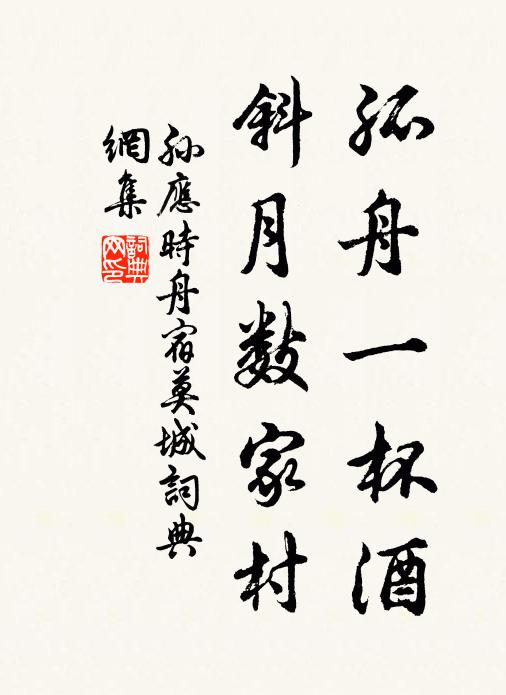 孤舟一杯酒
斜月数家村
孙應時舟宿莫城詞典
網集
詞典
网印